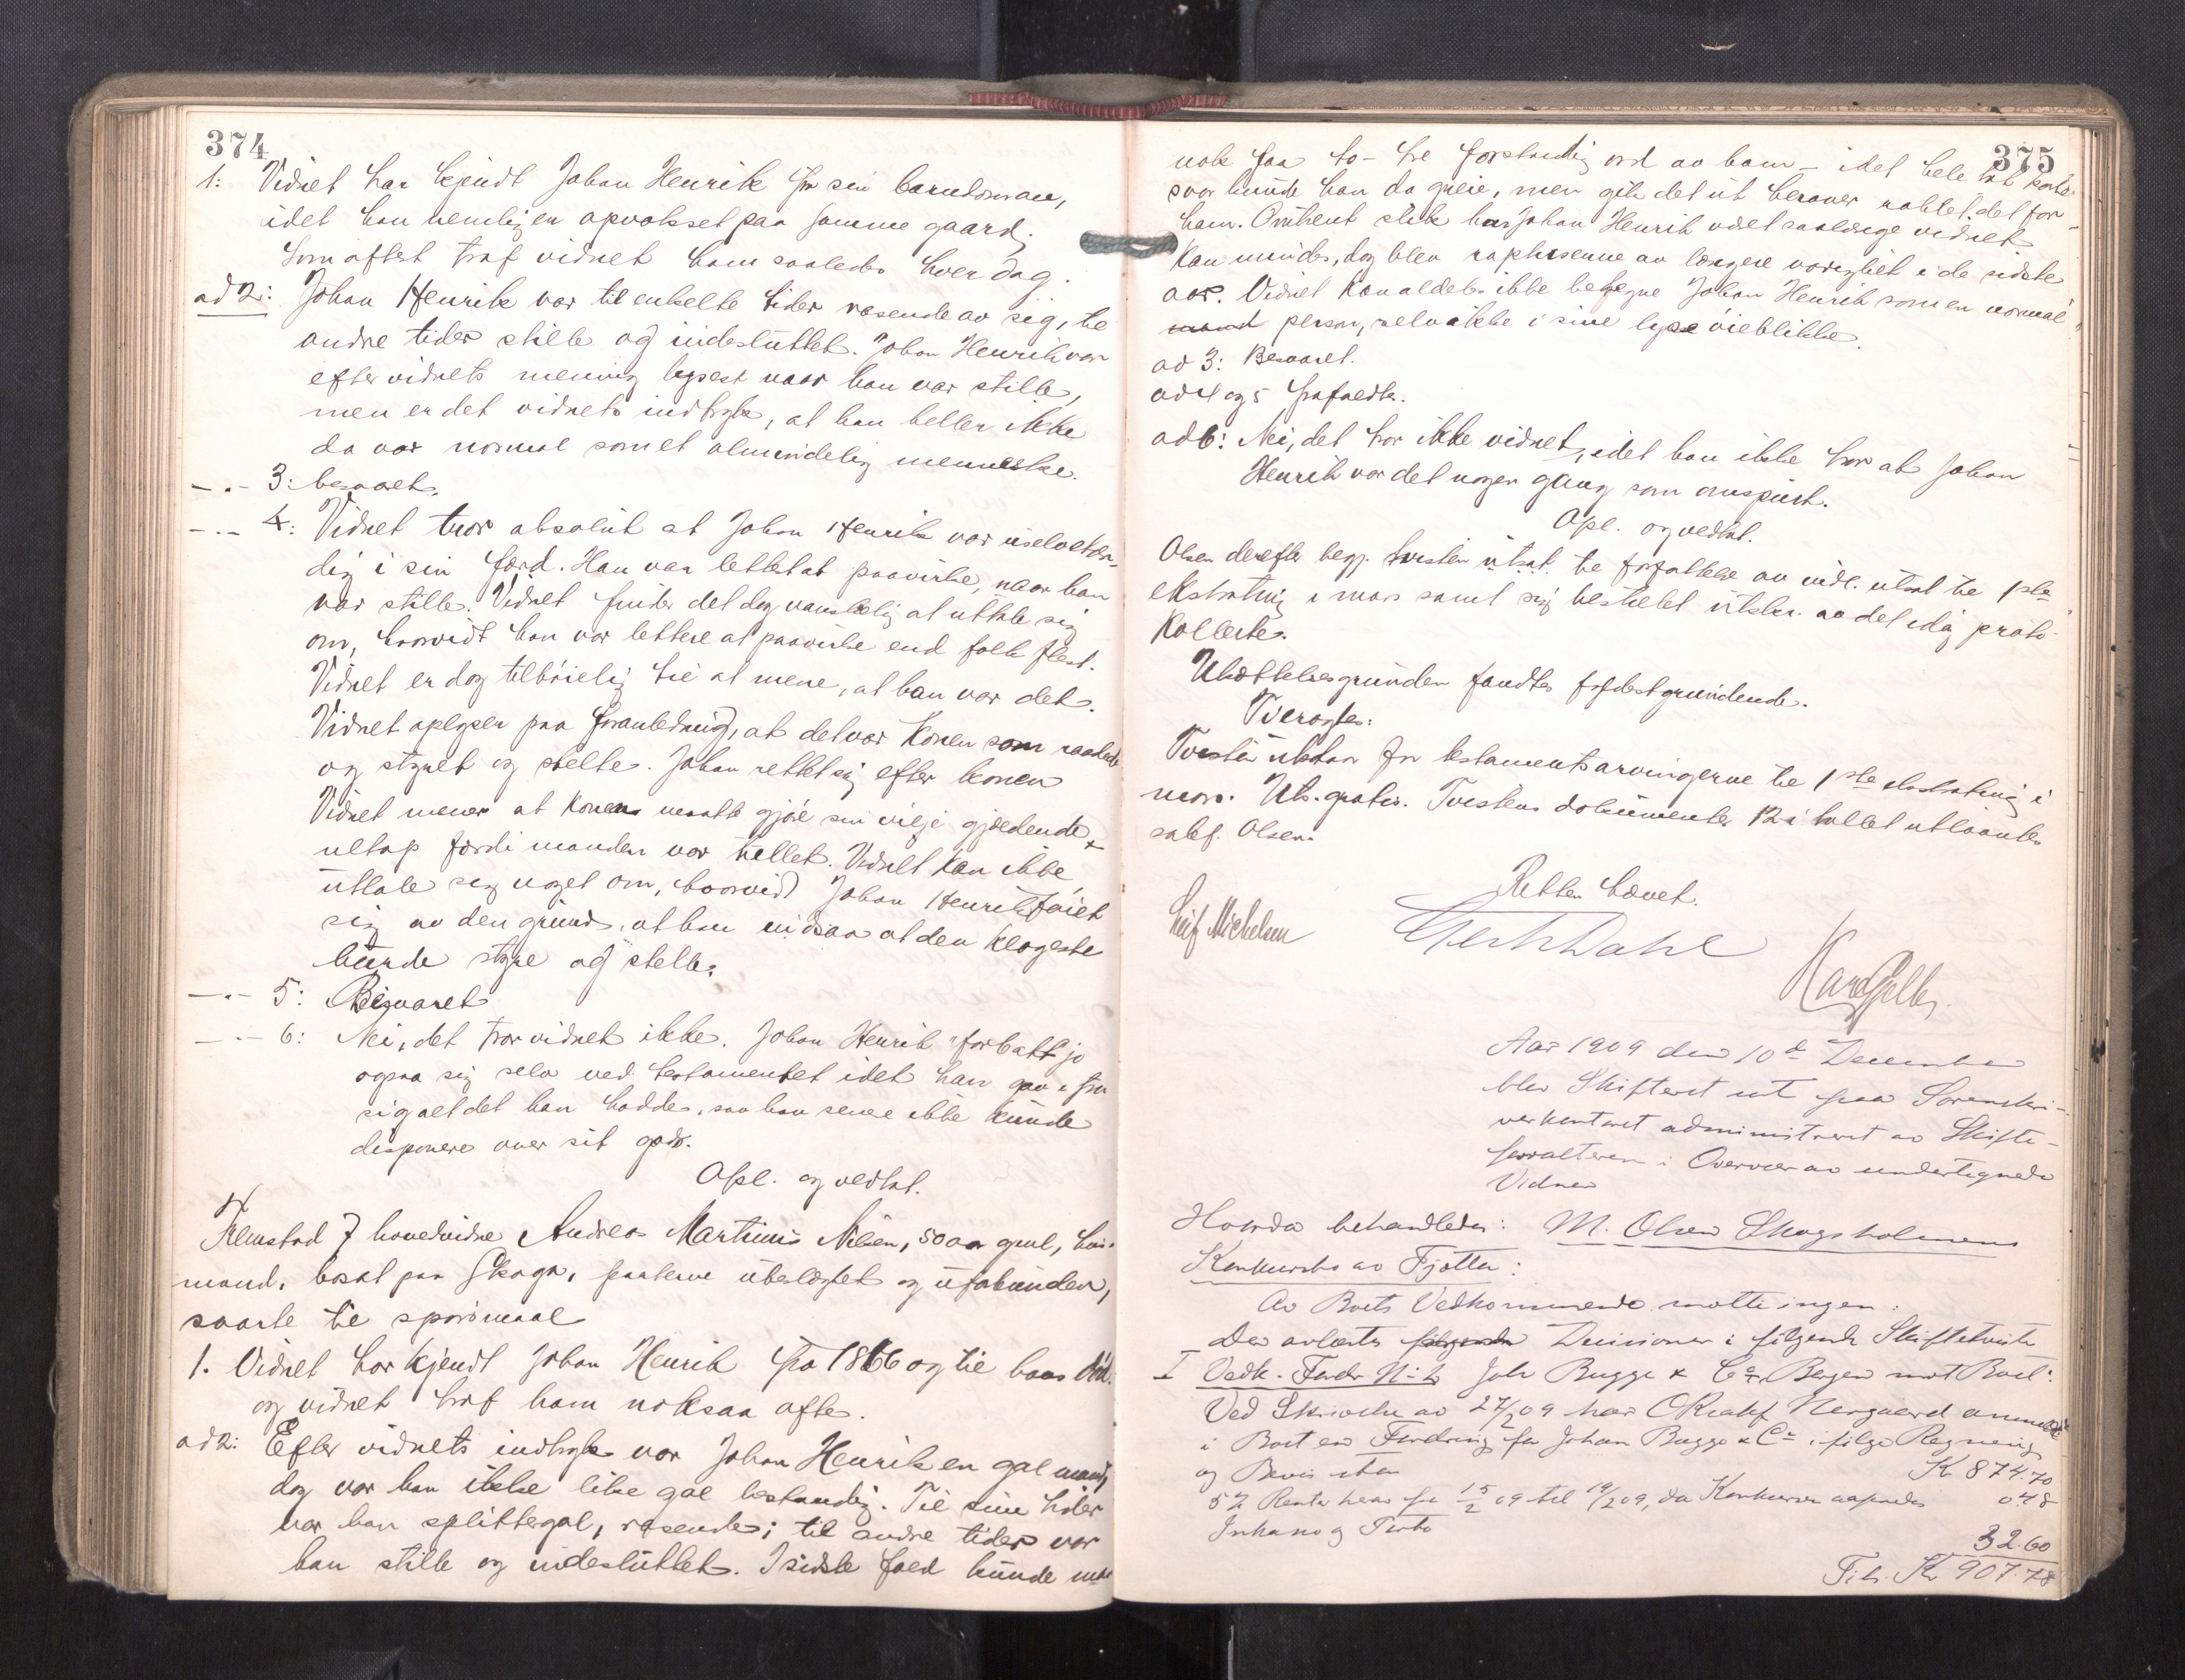 374
1: Vidnet har kjendt Johan Henrik fra sin barndom av,
idet han nemlig er opvokset paa samme gaard.
Som oftest traf vidnet ham saaledes hver dag.
ad 2: Johan Henrik var til enkelte tider rasende av sig, til
andre tider stille og indesluttet. Johan Henrik var
efter vidnets mening lysest naar han var stille,
men er det vidnets indtryk, at han heller ikke
da var normal som et almindelig menneske.
-"- 3: besvaret.
-"- 4: Vidnet tror absolut at Johan Henrik var uselvstæn-
dig i sin færd. Han var let at paavirke, naar han
var stille. Vidnet finder det dog vanskelig at uttale sig
om, hvorvidt han var lettere at paavirke end folk flest.
Vidnet er dog tilbøielig til at mene, at han var det.
Vidnet oplyser paa foranledning, at det var konen som raadet
og styret og stelte. Johan rettet sig efter konen
Vidnet mener at konen maatte gjøre sin vilje gjældende
netop fordi manden var tullet. Vidnet kan ikke
uttale sig noget om, hvorvidt Johan Henrik føiet
sig av den grund, at han indsaa at den klogeste
burde styre og stelle.
-"- 5: Besvaret
-"- 6: Nei, det tror vidnet ikke. Johan Henrik "forbatt" jo
ogsaa sig selv ved testamentet idet han gav ifra
sig alt det han hadde, saa han senere ikke kunde
disponere over sit gods.
Opl. og vedtat.
Fremstod 7 hovedvidne Andreas Martinus Nilsen, 50 aar gml, hus-
mand, bosat paa Skaga, parterne ubeslægtet og uforbunden,
svarte til spørsmaal
1. Vidnet har kjendt Johan Henrik fra 1866 og til hans død.
og vidnet traf ham noksaa ofte.
ad 2: Efter vidnets indtryk var Johan Henrik en gal mand,
dog var han ikke like gal bestandig. Til sine tider
var han splittegal, rasende; til andre tider var
han stille og indesluttet. I sidste fald kunde man
375
nok faa to-tre forstandig ord av ham - idet hele tat korte
svar kunde han da greie, men gik det ut herover raklet det for
ham. Omtrent slik har Johan Henrik været saalænge vidnet
kan mindes, dog blev raptusene av længere varighet i de sidste
aar. Vidnet kan aldeles ikke betegne Johan Henrik som en normal
mand person, selv ikke i sine lyse øieblikke.
ad 3: Besvaret.
ad 4 og 5 frafaldt.
ad 6: Nei, det tror ikke vidnet, idet han ikke tror at Johan
Henrik var det nogen gang som omspurt.
Opl. og vedtat.
Olsen derefter begj. tvisten utsat til forfattelse av indl. utsat til 1ste
ekstrating i mars samt sig bestillet utskr. av det idag proto-
kollerte.
Utsættelsesgrunden fandtes fyldestgjørende.
Tiltoges:
Tvisten utstaar for testamentsarvingerne til 1ste ekstrating i
mars. Uts. gratis. Tvistens dokumenter 12 i tallet utlaantes
sakf. Olsen.
Retten hævet.
Leif Michelsen
Gerh Dahl
Aar 1909 den 10de December
blev Skifteret sat paa Sorenskri-
verkontoret administreret av Skifte-
forvalteren i Overvær av undertegnede
Vidner
Hvorda behandledes: M. Olsen Skogsholmens
Konkursbo av Tjøtta:
Av Boets Vedkommende møtte ingen.
Der avlæstes følgende Decisioner i følgende Skiftetvister
I Vedk. Fordr No 2 Joh Bugge & Co, Bergen mot Boet:
Ved Skrivelse av 27/2 09 har O R sakf Nergaard anmeldt
i Boet en Fordring fra Johan Bugge & Co ifølge Regning
og Bevis stor Kr 874.70
5 % Renter herav fra 15/2 09 til 19/2 09, da Konkursen aapnedes 0.48
Inkasso og Porto 32.60
Tils. Kr 907.78